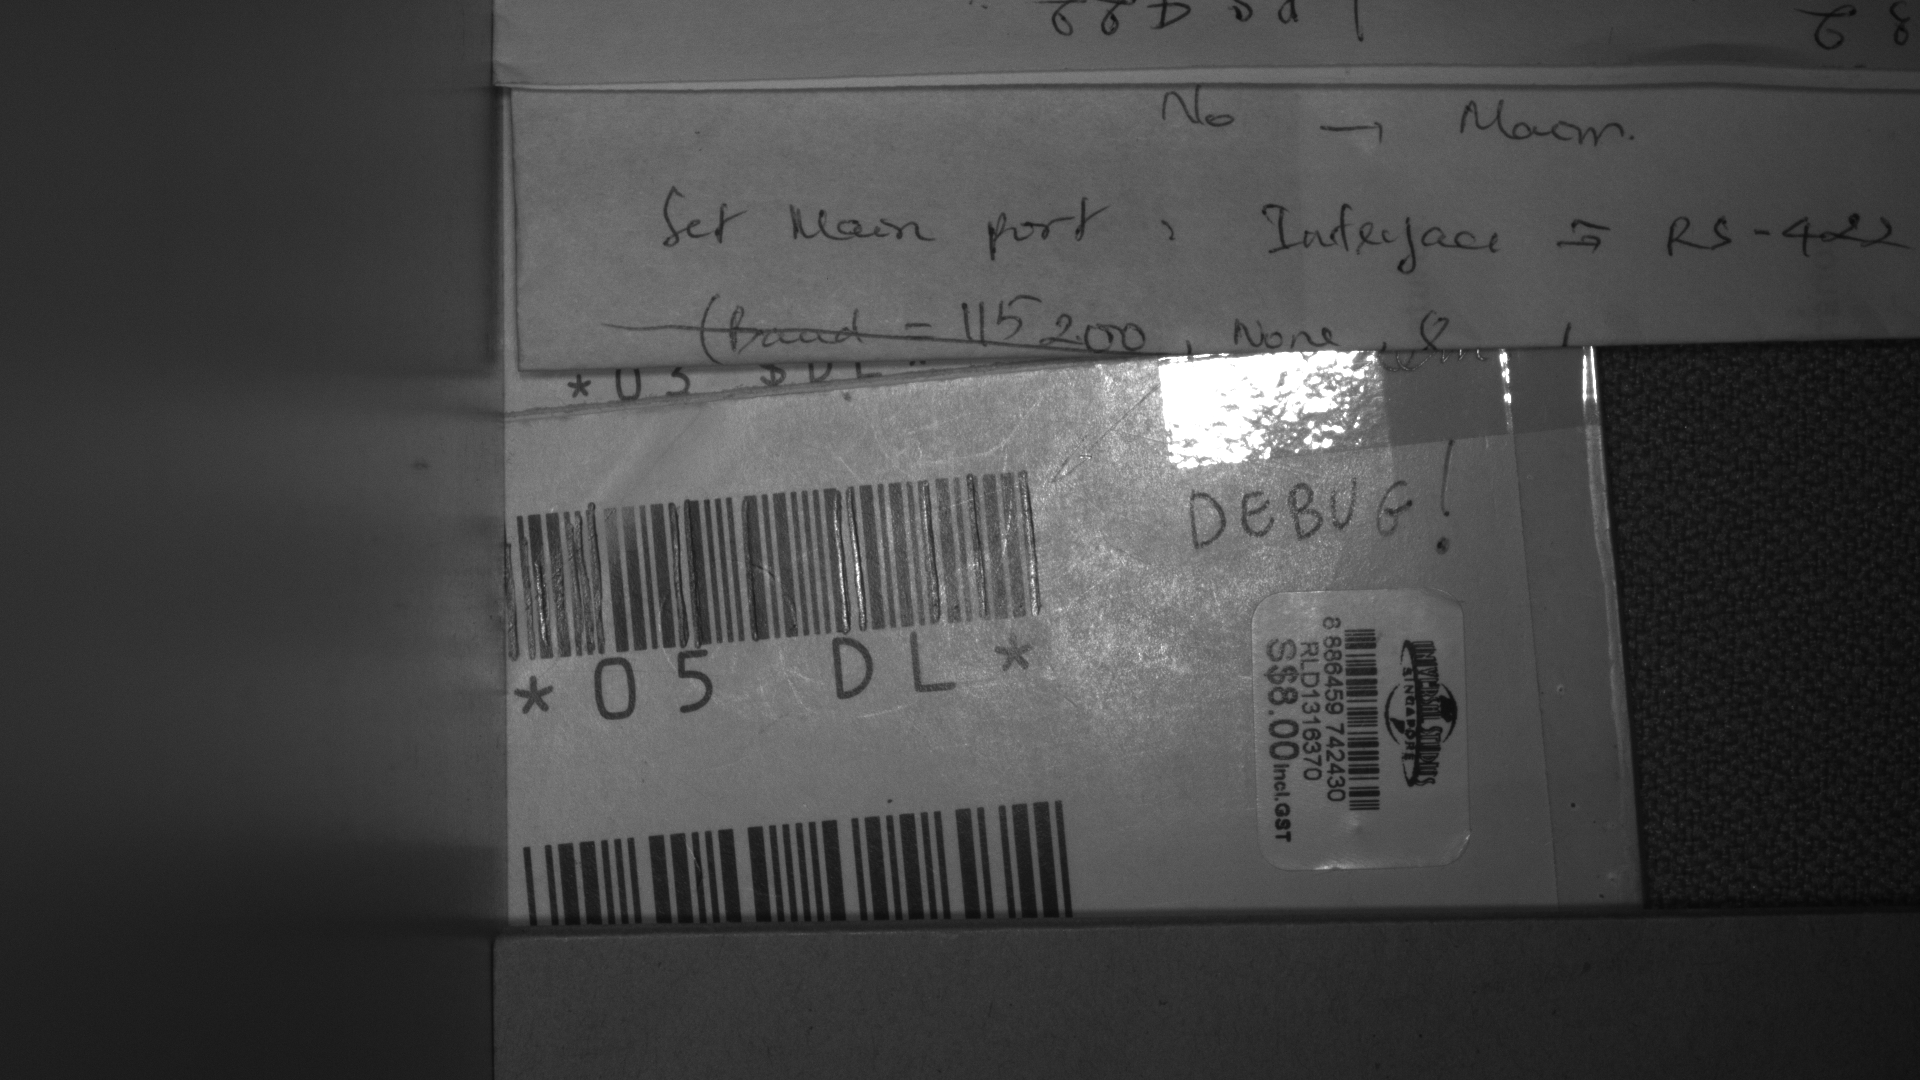 No → Main.
Set Main port : Interface => RS-422
(Baud = 115200, None, 8
DEBUG!
*05 DL*
UNIVERSAL STUDIOS
SINGAPORE
8 886459 742430
RLD1316370
S$8.00 Incl.GST